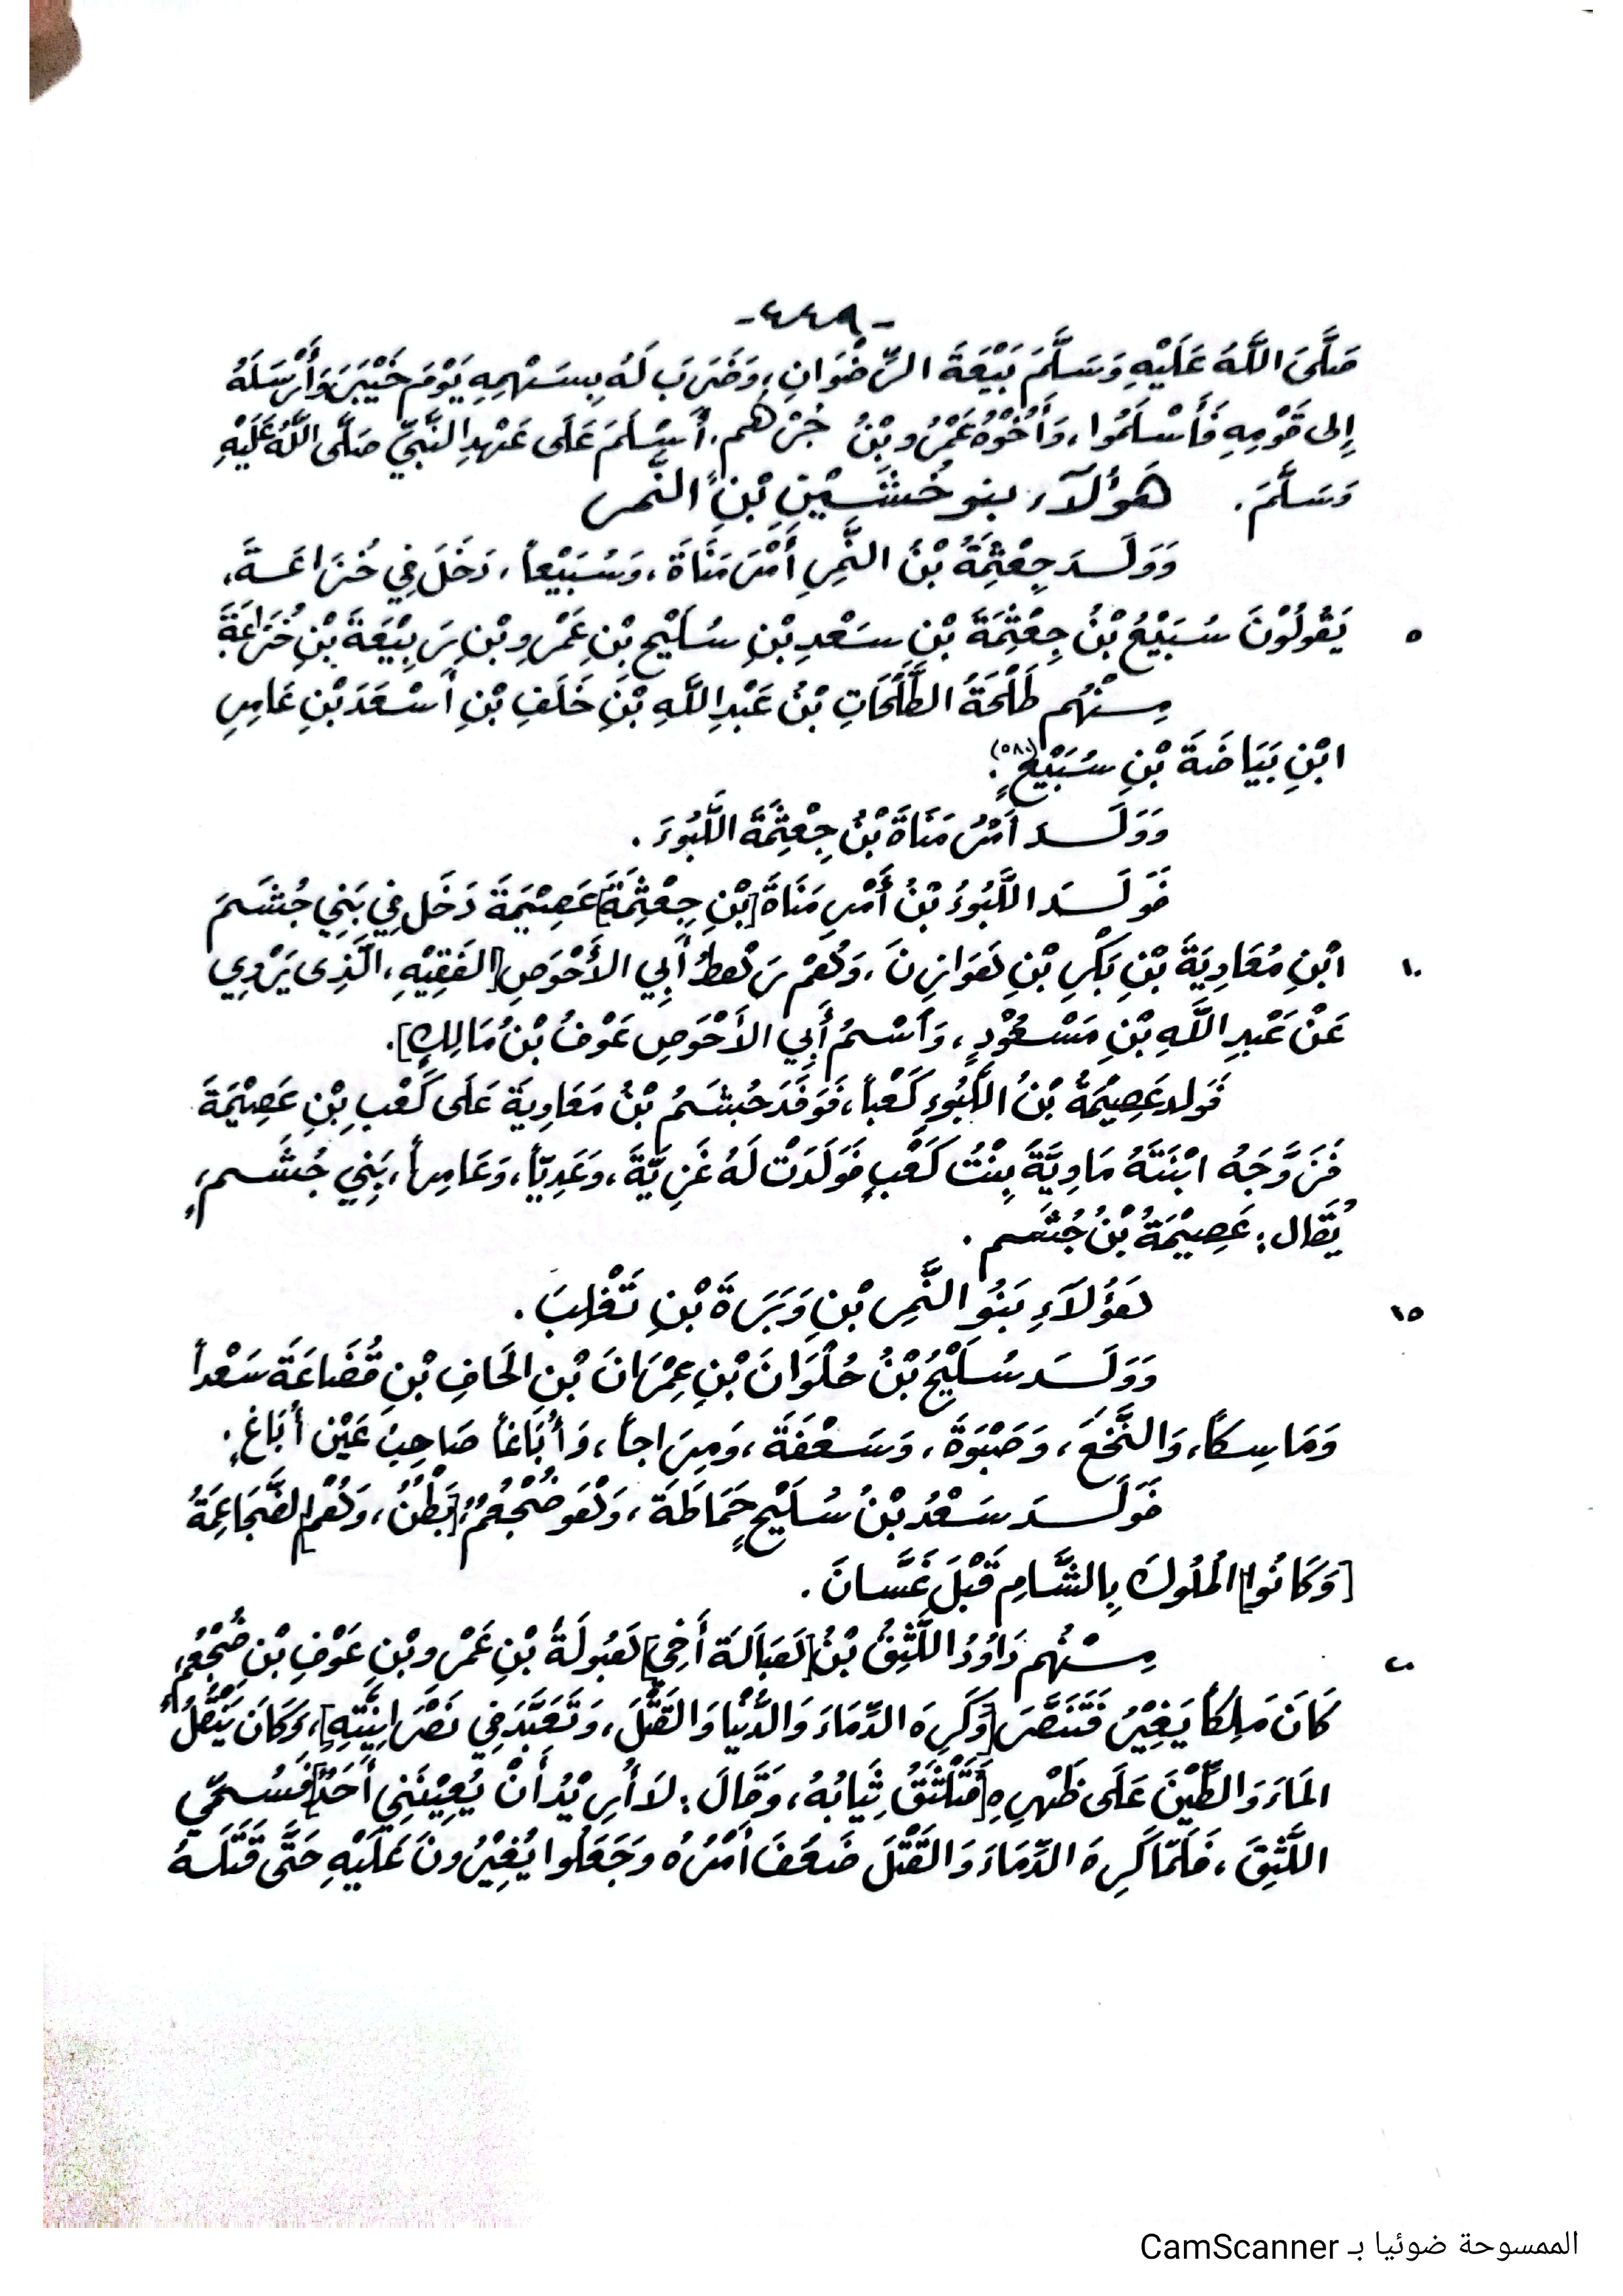 -٤٤٩-
صَلَّىَ اللَّهُ عَلَيْهِ وَسَلَّمَ بَيْعَةَ الرِّضْوَانِ، وَضَرَبَ لَهُ بِسَهْمِهِ يَوْمَ خَيْبَرَ وَأَرْسَلَهُ
إِلى قَوْمِهِ فَأَسْلَمُوا، وَأَخُوْهُ عَمْرُو بْنُ جُرْهم، أَسْلَمَ عَلَى عَهْدِ النَّبِيِّ صَلَّى اللَّهُ عَلَيْهِ
وَسَلَّمَ. هَؤُلَآء بنو خُشَيْنِ بْنِ النَّمر
وَوَلَدَ جِعْثِمَةُ بْنُ النَّمِرِ أَمْرَ مَنَاةَ، وَسُبَيْعاً، دَخَلَ فِي خُزَاعَةَ،
٥ يَقُولُوْنَ سُبَيْعُ بْنُ جِعْثِمَةَ بْنِ سَعْدِ بْنِ سُلَيْحِ بْنِ عَمْرِو بْنِ رَبِيْعَةَ بْنِ خُزَاعَةَ
مِنْهُم طَلْحَةُ الطَّلَحَاتِ بْنُ عَبْدِ اللَّهِ بْنِ خَلَفِ بْنِ أَسْعَدَ بْنِ عَامِرِ
ابْنِ بَيَاضَةَ بْنِ سُبَيْعٍ(٥٨٠).
وَوَلَدَ أَمْرُ مَنَاةَ بْنُ جِعْثِمَةَ اللَّبُوءَ.
فَوَلَدَ اللَّبُوءُ بْنُ أَمْرِ مَنَاةَ [بْنِ جِعْثِمَةَ] عَصِيْمَةَ دَخَل فِي بَنِي جُشَمَ
١٠ ابْنِ مُعَاوِيَةَ بْنِ بَكْرِ بْنِ هَوَازِنَ، وَهُمْ رَهْطُ أَبِي الأَحْوَصِ [الفَقِيْهِ، الَّذِى يَرْوِي
عَنْ عَبْدِ اللَّهِ بْنِ مَسْعُوْدٍ، وَاَسْمُ أَبِي الأَحْوَصِ عَوْفُ بْنُ مَالِكٍ].
فَوَلد عَصِيْمَةُ بْنُ اللَّبُوءِ كَعْباً، فَوَفَدَ جُشَمُ بْنُ مَعَاوِيَةَ عَلَى كَعْبِ بْنِ عَصِيْمَةَ
فَزَوَّجَهُ ابْنَتَهُ مَاوِيَّةَ بِنْتُ كَعْبٍ فَوَلَدَتْ لَهُ غَزِيَّةَ، وَعَدِيّاً، وَعَامِراً، بَنِي جُشَمٍ،
يُقَال: عَصِيْمَةُ بْنُ جُشَم.
١٥ هَؤُلَآءِ بَنُو النَّمِرِ بْنِ وَبَرَةَ بْنِ تَغْلِبَ.
وَوَلَدَ سُلَيْحُ بْنُ حُلْوَانَ بْنِ عِمْرَانَ بْنِ الحَافِ بْنِ قُضَاعَةَ سَعْداً
وَمَاسِكاً، وَالنَّخَعَ، وَصَبْوَةَ، وَسَعْفَةَ، وَمِرَاجاً، وَأُبَاغاً صَاحِبُ عَيْن أُبَاغٍ.
فَوَلَدَ سَعْدُ بْنُ سُلَيْحٍ حَمَاطَةَ، وَهْوَ ضُجْعُمُ، [بَطْنُ، وَهُمْ] الضَّجَاعِمَةُ
[وَكَانُوا] المُلُوكَ بِالشَّامِ قَبْلَ غَسَّانَ.
٢٠ مِنْهُم دَاوُدُ اللَّثِقُ بْنُ [هَبَالَةَ أَخِي] هَبُولَةَ بْنِ عَمْرِو بْنِ عَوْفِ بْنِ ضُجْعُمٍ،
كَانَ مَلِكاً يَغِيْرُ فَتَنَصَّرَ [وَكَرِهَ الدِّمَاءَ وَالدُّنْيَا وَالقَتْلَ، وَتَعَبَّدَ فِي نَصْرَانِيَّتِهِ]، وَكَانَ يَنْقُلُ
المَاءَ وَالطِّيْنَ عَلَى ظَهْرِهِ [فَتَلْثَقُ ثِيَابُهُ، وَقَالَ: لاَ أُرِيْدُ أَنْ يُعِيْنَنِي أَحَدٌ] فَسُمِّي
اللَّثِقَ، فَلَمَّا كَرِهَ الدِّمَاءَ وَالقَتْلَ ضَعُفَ أَمْرُهُ وَجَعَلُوا يُغِيْرُونَ عَلَيْهِ حَتَّى قَتَلَهُ
الممسوحة ضوئيا بـ CamScanner